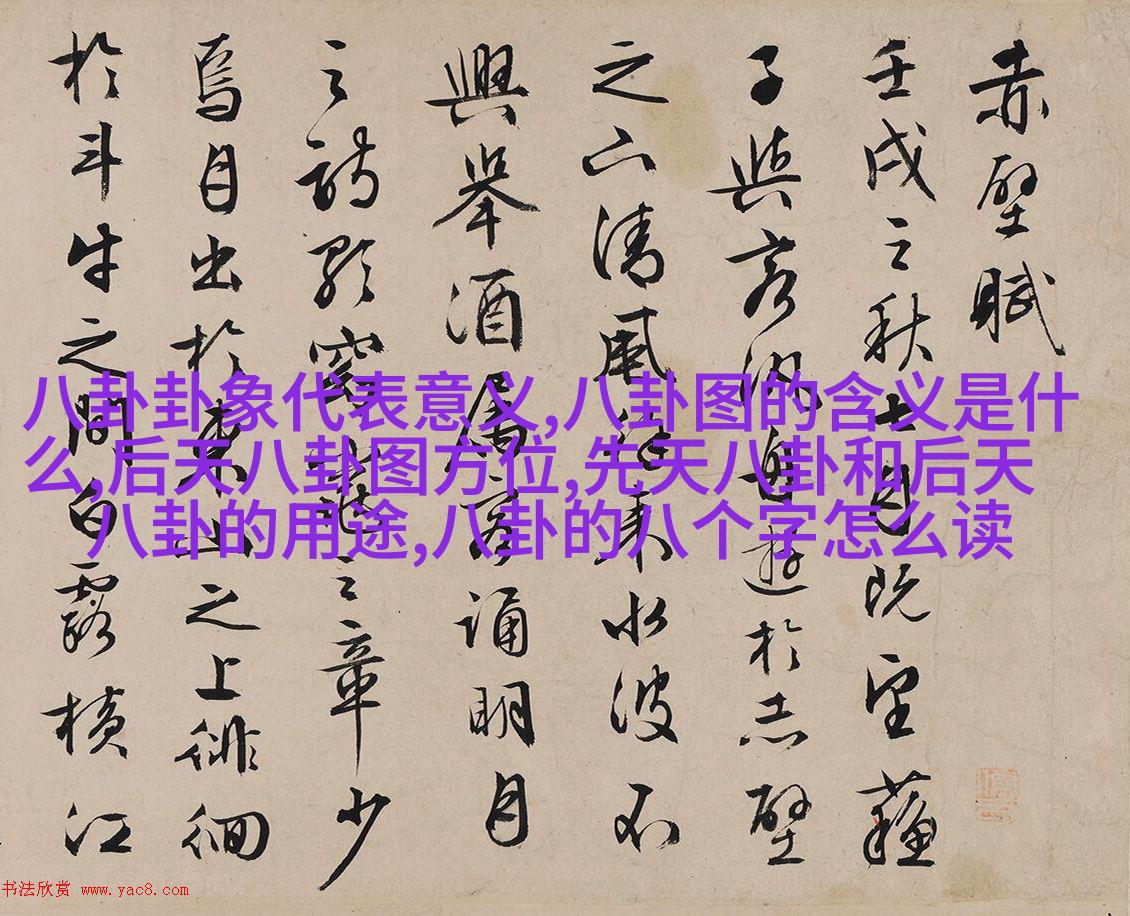 赤壁賦
壬戌之秋七月既望蘇
子與客汎舟遊於赤壁
之下清風徐來水波不
興舉酒屬客誦明月
之詩歌窈窕之章少
焉月出於東山之上徘徊
於斗牛之間白露橫江
八卦卦象代表意义,八卦图的含义是什
么,后天八卦图方位,先天八卦和后天
八卦的用途,八卦的八个字怎么读
书法欣赏 www.yac8.com